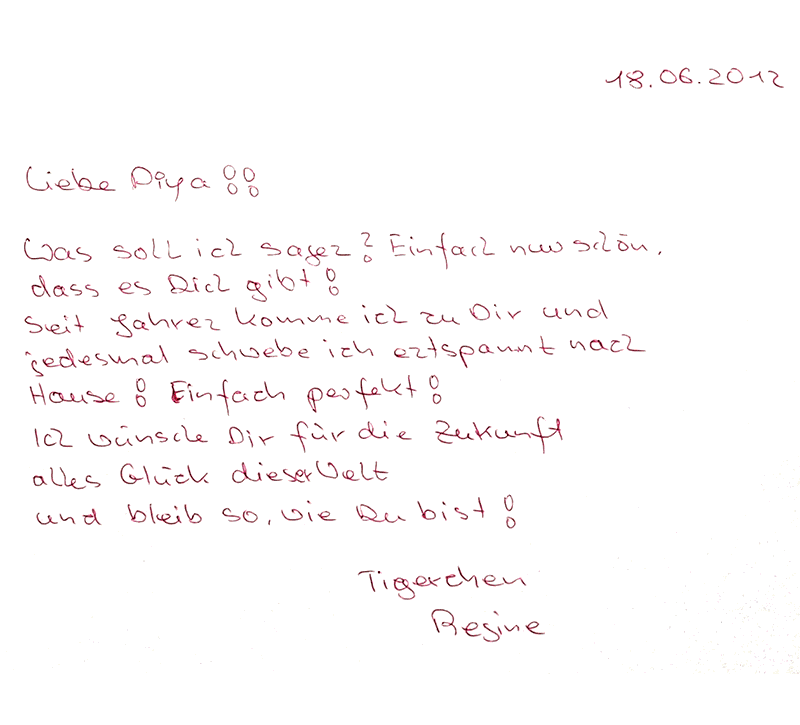 18.06.2012
Liebe Diya !!
Was soll ich sagen? Einfach nur schön,
dass es Dich gibt!
Seit Jahren komme ich zu Dir und
jedesmal schwebe ich entspannt nach
Hause! Einfach perfekt!
Ich wünsche Dir für die Zukunft
alles Glück dieser Welt
und bleib so, wie Du bist!
Tigerchen
Regine